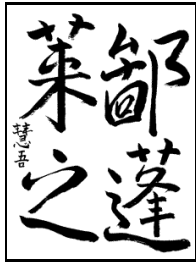 鄙蓬
莱之
慧吾